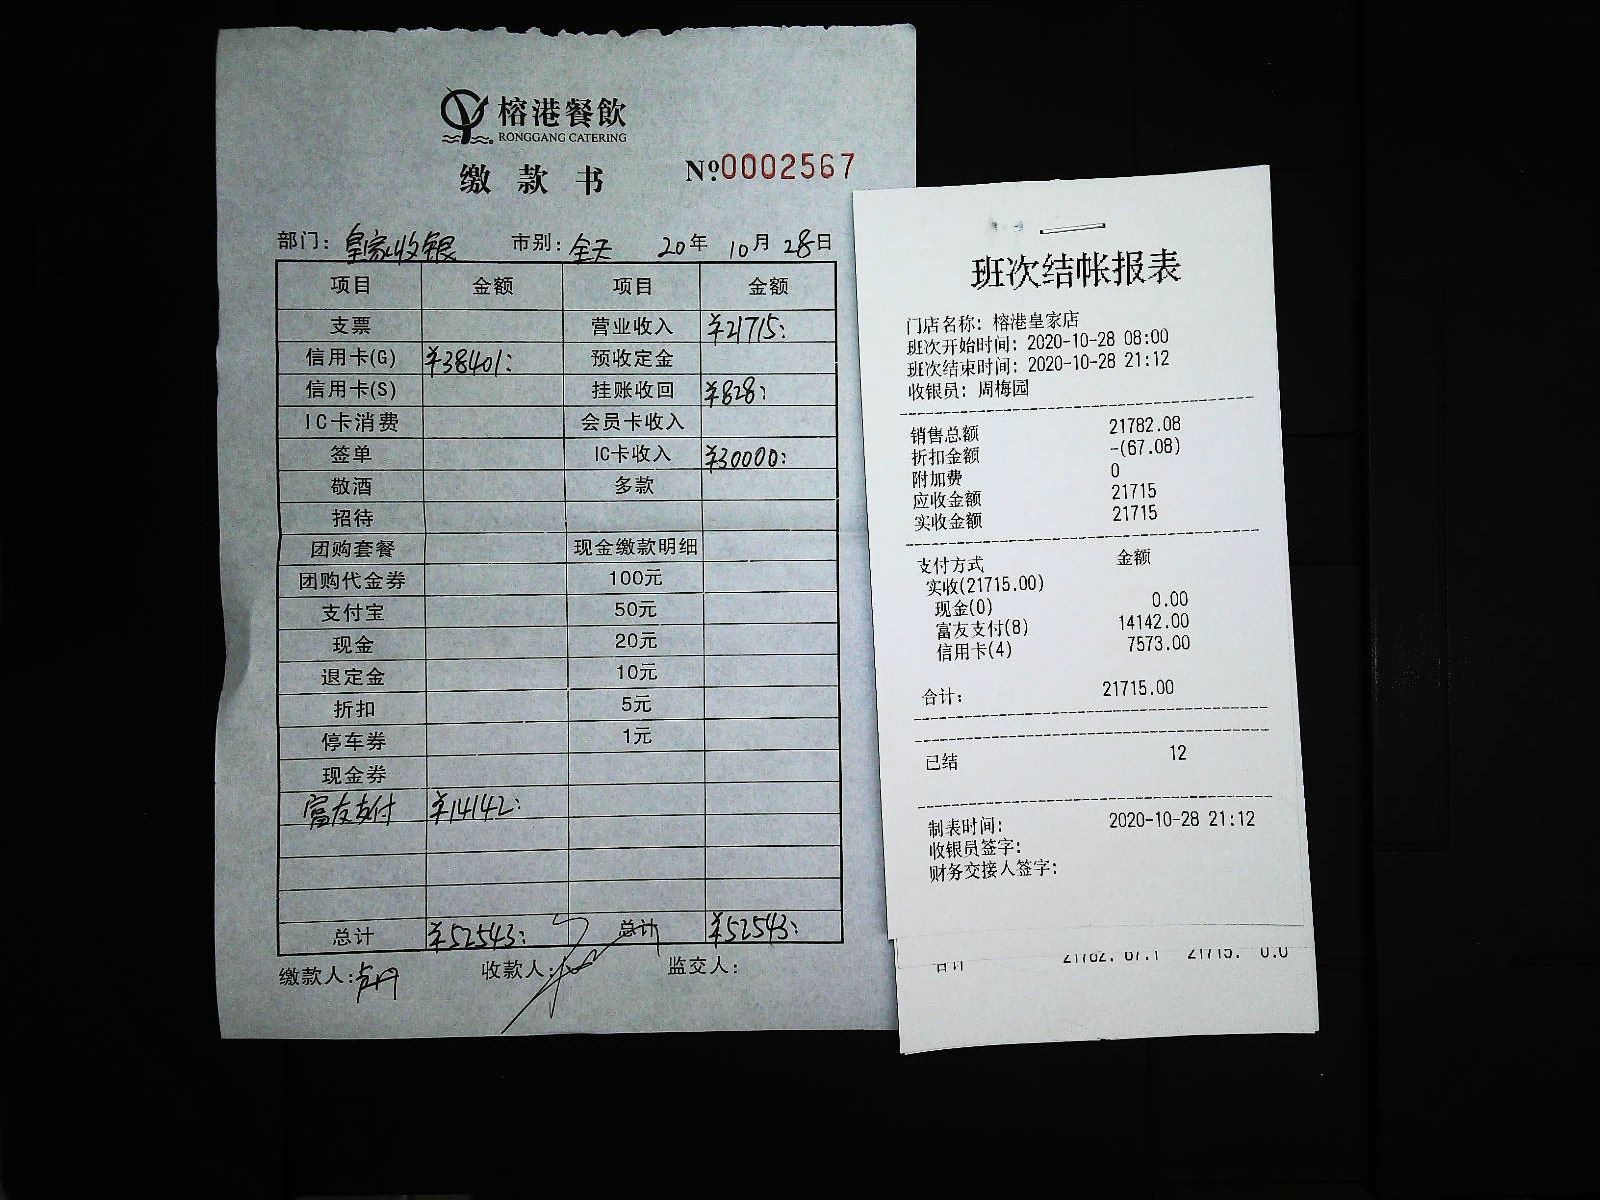 榕港餐飲
RONGGANG CATERING
缴款书 №0002567
部门：皇家收银 市别：全天 20年 10月 28日
项目 金额 项目 金额
支票 营业收入 ¥21715:
信用卡(G) ¥38401: 预收定金
信用卡(S) 挂账收回 ¥828:
IC卡消费 会员卡收入
签单 IC卡收入 ¥30000:
敬酒 多款
招待
团购套餐 现金缴款明细
团购代金券 100元
支付宝 50元
现金 20元
退定金 10元
折扣 5元
停车券 1元
现金券
富友支付 ¥14142:
总计 ¥52543: 总计 ¥52543:
缴款人: 收款人: 监交人:
班次结帐报表
门店名称: 榕港皇家店
班次开始时间: 2020-10-28 08:00
班次结束时间: 2020-10-28 21:12
收银员: 周梅园
销售总额 21782.08
折扣金额 -(67.08)
附加费 0
应收金额 21715
实收金额 21715
支付方式 金额
实收(21715.00)
现金(0) 0.00
富友支付(8) 14142.00
信用卡(4) 7573.00
合计: 21715.00
已结 12
制表时间: 2020-10-28 21:12
收银员签字:
财务交接人签字: